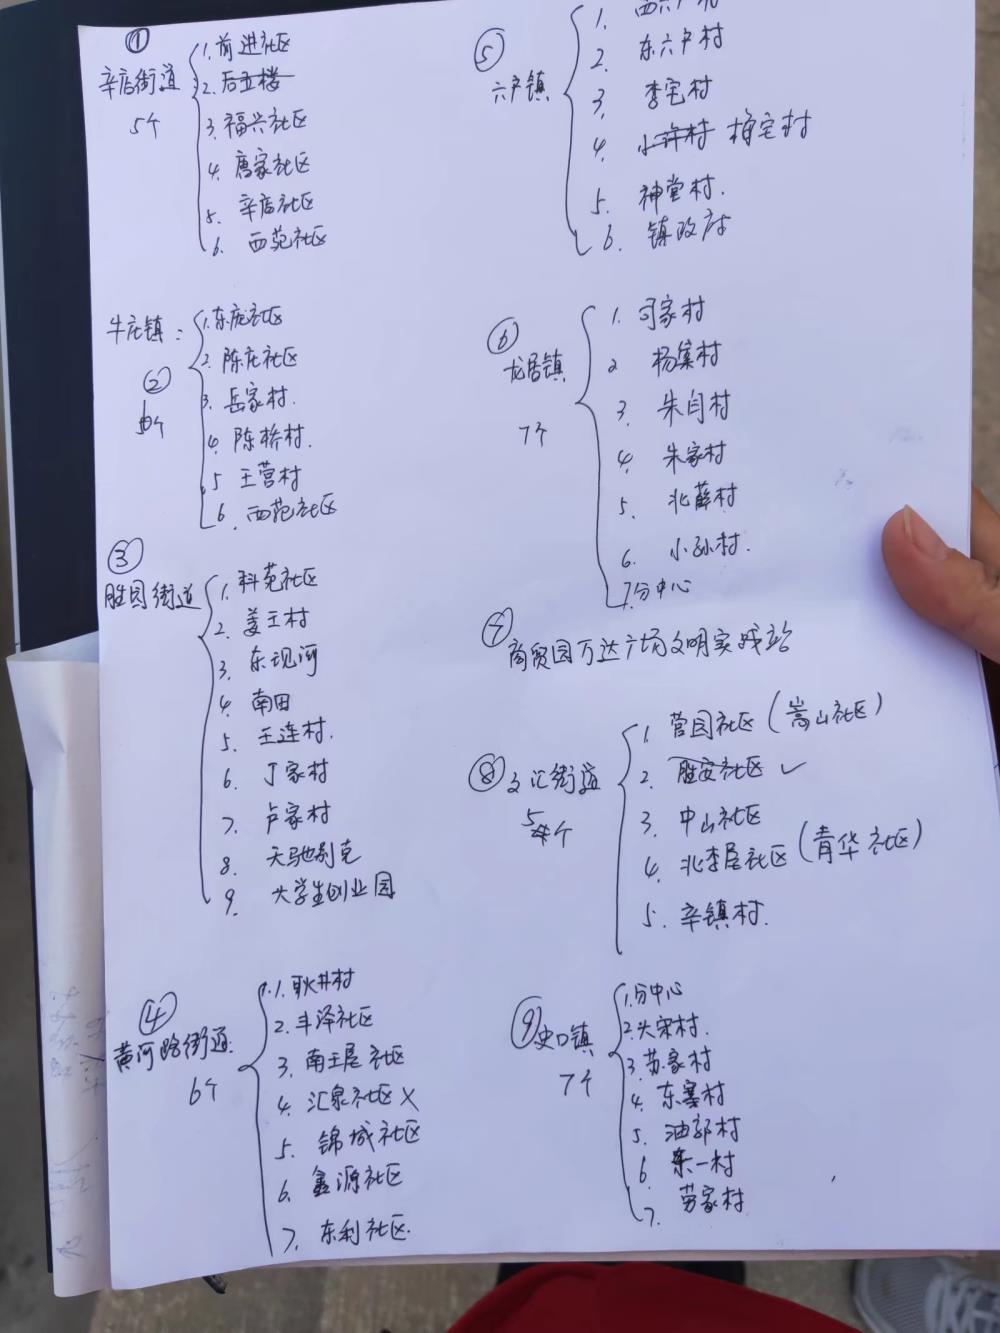 ①
辛店街道
5个
1. 前进社区
2. 后五楼
3. 福兴社区
4. 唐家社区
5. 辛店社区
6. 西苑社区
牛庄镇：
②
6个
1. 东庞社区
2. 陈庄社区
3. 岳家村.
4. 陈桥村.
5 王营村
6. 西范社区
③
胜园街道
1. 科苑社区
2. 姜王村
3. 东现河
4. 南田
5. 王连村.
6. 丁家村
7. 卢家村
8. 天驰别克
9. 大学生创业园
④
黄河路街道:
6个
1. 耿井村
2. 丰泽社区
3. 南王屋社区
4. 汇泉社区 X
5. 锦城社区
6. 鑫源社区
7. 东利社区.
⑤
六户镇
1. 西六户村
2. 东六户村
3. 李宅村
4. 小许村 梅宅村
5. 神堂村.
6. 镇政府
⑥
龙居镇
7个
1. 司家村
2 杨集村
3. 朱闫村
4. 朱家村
5. 北薛村
6. 小孙村.
7. 分中心
⑦
商贸园万达广场文明实践站
⑧ 文汇街道
5个
1. 营园社区（嵩山社区）
2. 胜安社区 ✓
3. 中山社区
4. 北李屋社区（青华社区）
5. 辛镇村.
⑨ 史口镇
7个
1. 分中心
2. 大宋村.
3. 苏家村
4. 东寨村
5. 油郭村
6. 东一村
7. 劳家村